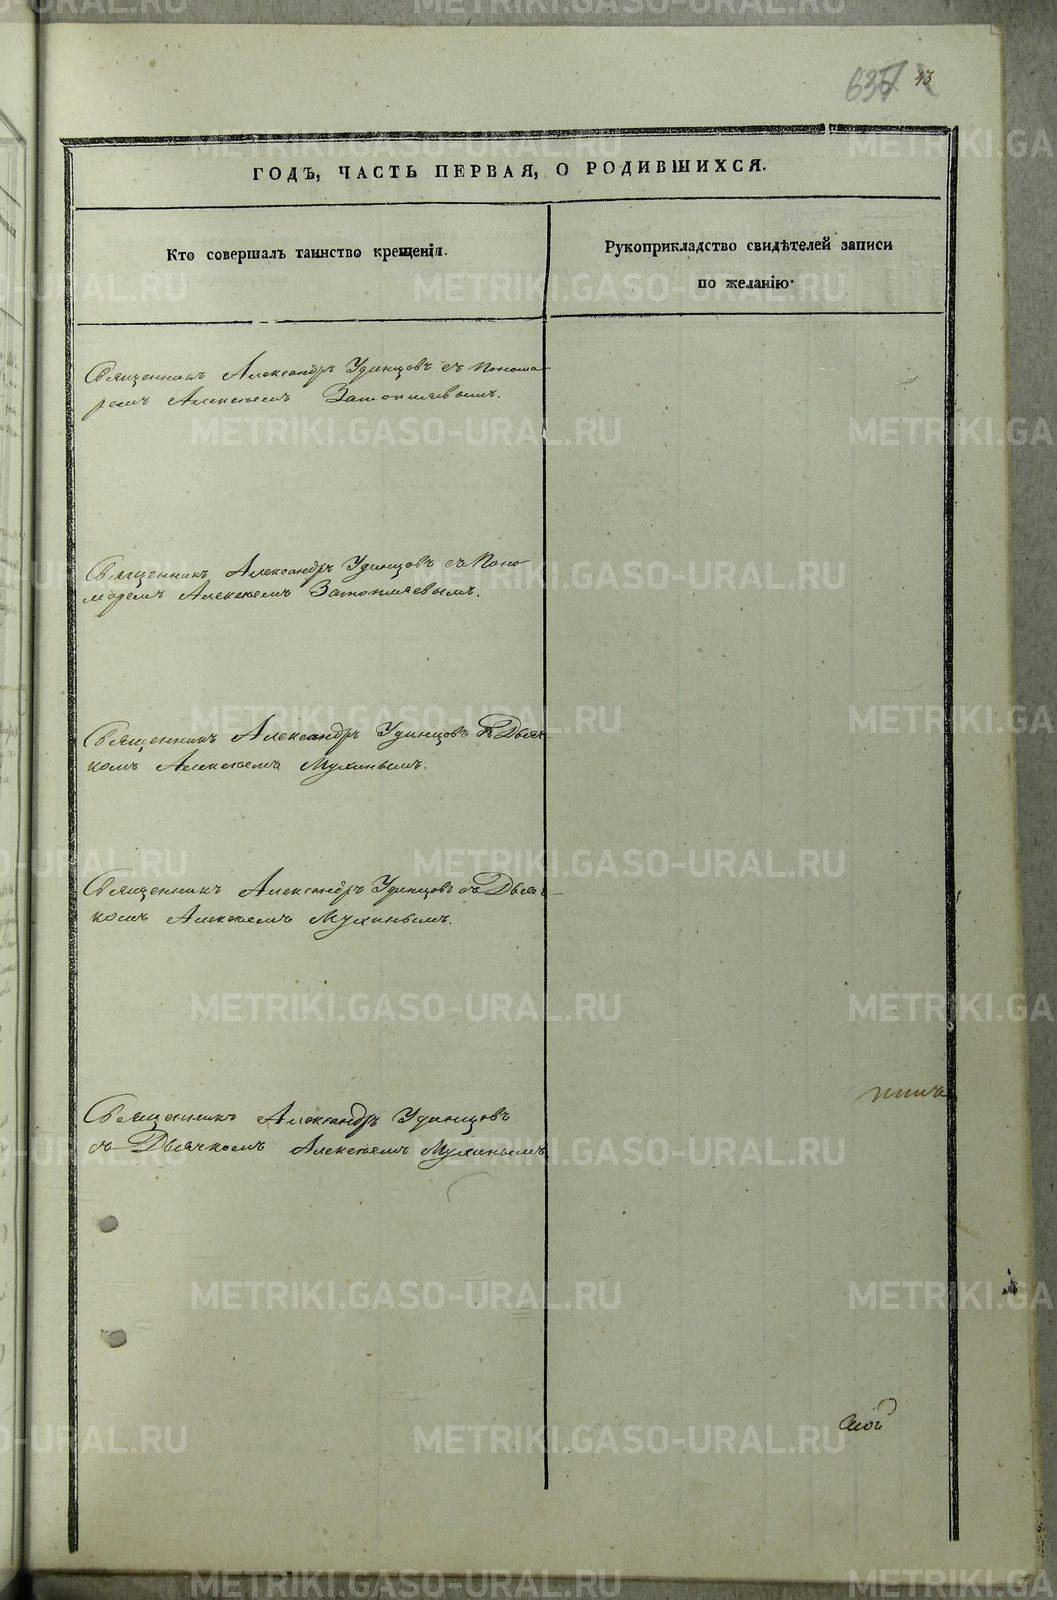 43
ГОДЪ, ЧАСТЬ ПЕРВАЯ, О РОДИВШИХСЯ.
Кто совершалъ таинство крещенія.
Рукоприкладство свидѣтелей записи
по желанію.
Священникъ Александръ Удинцовъ съ Понома-
ремъ Алексѣемъ
Священникъ Александръ Удинцовъ съ Поно
маремъ Алексѣемъ
Священникъ Александръ Удинцовъ съ Дьяч-
комъ Алексѣемъ Мухинымъ.
Священникъ Александръ Удинцовъ съ Дьяч-
комъ Алексѣемъ Мухинымъ.
Священникъ Александръ Удинцовъ
съ Дьячкомъ Алексѣемъ Мухинымъ
METRIKI.GASO-URAL.RU